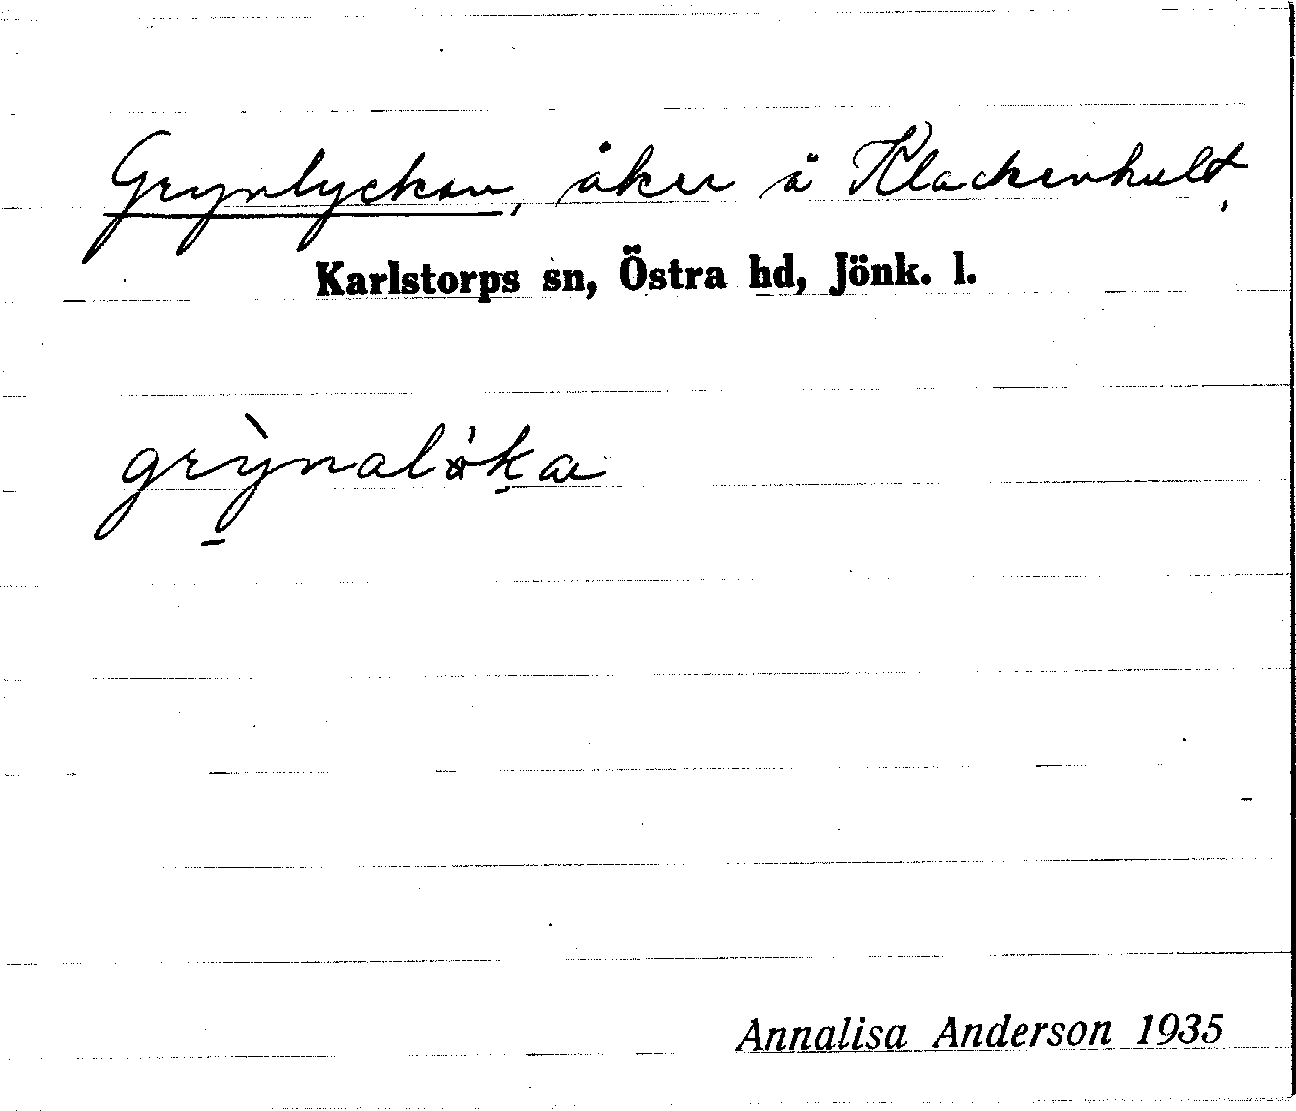 Grynlyckan, åker å Klackenhult,
Karlstorps sn, Östra hd, Jönk. l.
grỳnaløka
Annalisa Anderson 1935